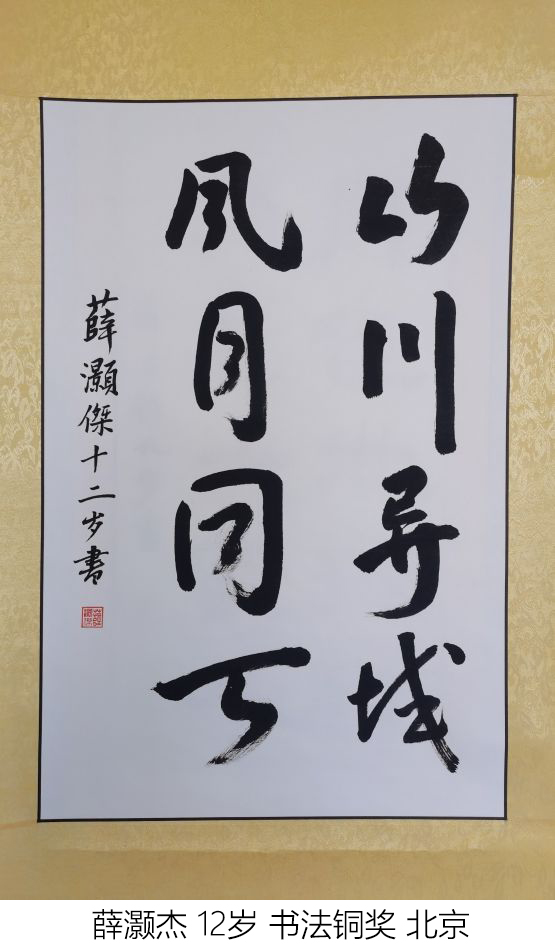 山川异域
风月同天
薛灝傑十二岁書
薛灏杰 12岁 书法铜奖 北京